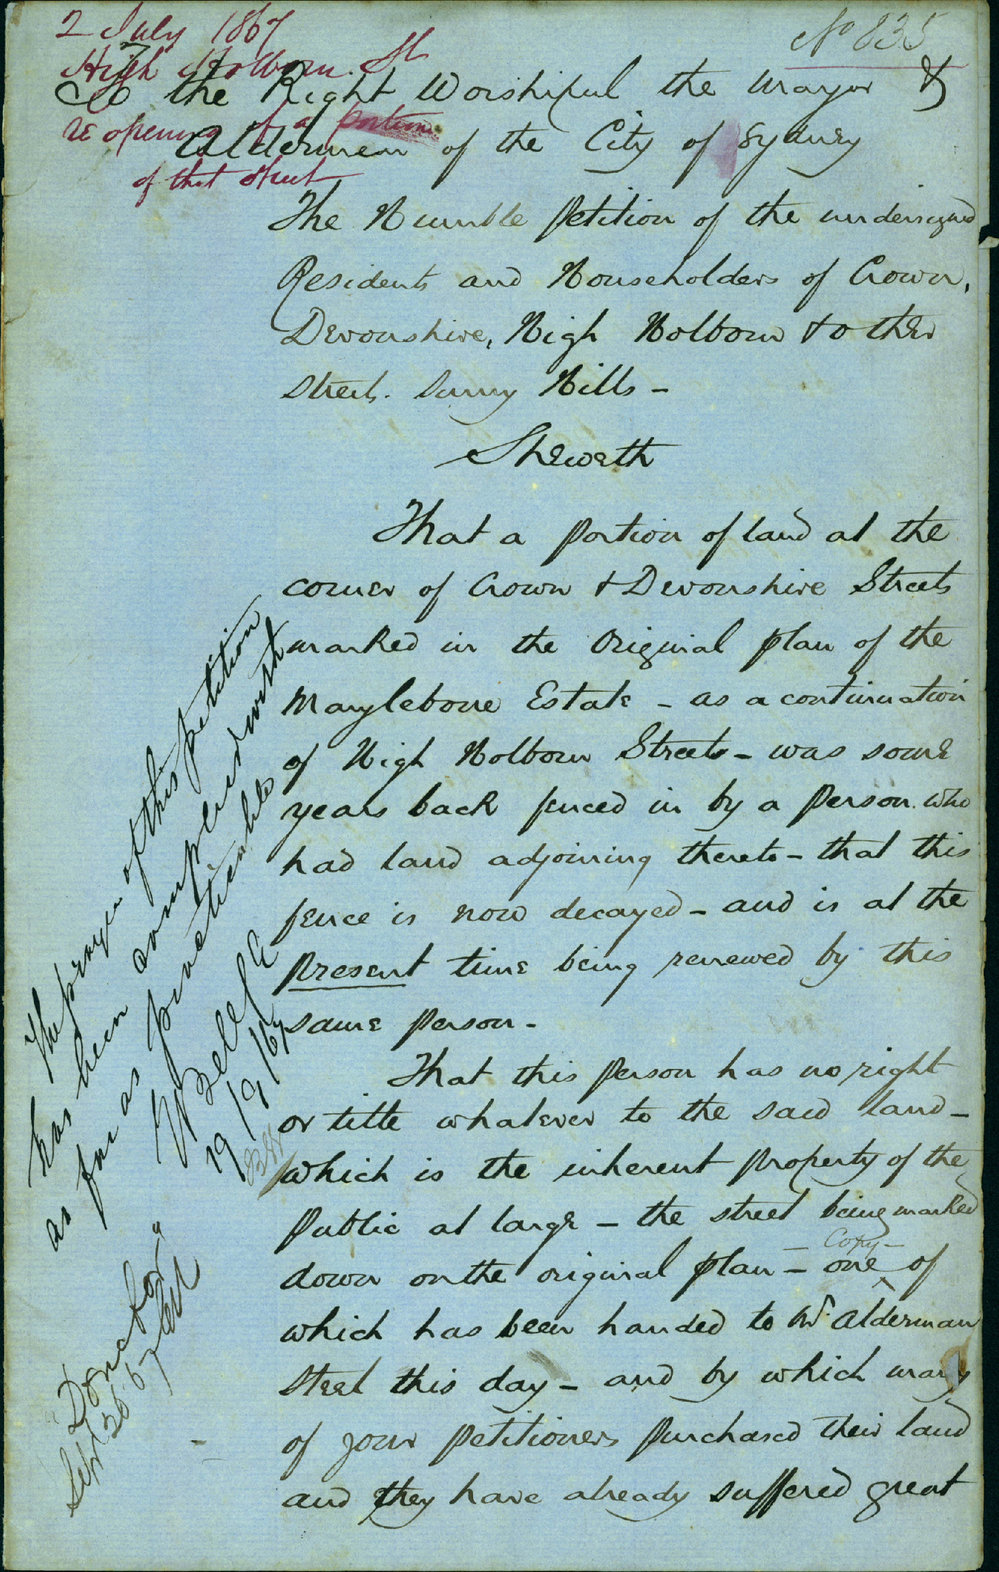 2 July 1867
High Holborn St
re opening of a portion
of that street
No 835
To the Right Worshipful the Mayor &
Aldermen of the City of Sydney
The Humble Petition of the undersigned
Residents and Householders of Crown,
Devonshire, High Holborn & other
streets. Surry Hills -
Sheweth
That a portion of land at the
corner of Crown & Devonshire Streets
marked in the Original plan of the
Marylebone Estate - as a continuation
of High Holborn Streets - was some
years back fenced in by a person who
had land adjoining thereto - that this
fence is now decayed - and is at the
present time being renewed by this
same person -
That this person has no right
or title whatever to the said land -
which is the inherent property of the
Public at large - the street being marked
down on the original plan - one Copy of
which has been handed to Mr. Alderman
Steel this day - and by which many
of your Petitioners purchased their land
and they have already suffered great
The prayer of this petition
has been complied with
as far as practicable
W Bell CE
19/9/67
"Done for"
Sept 26 67